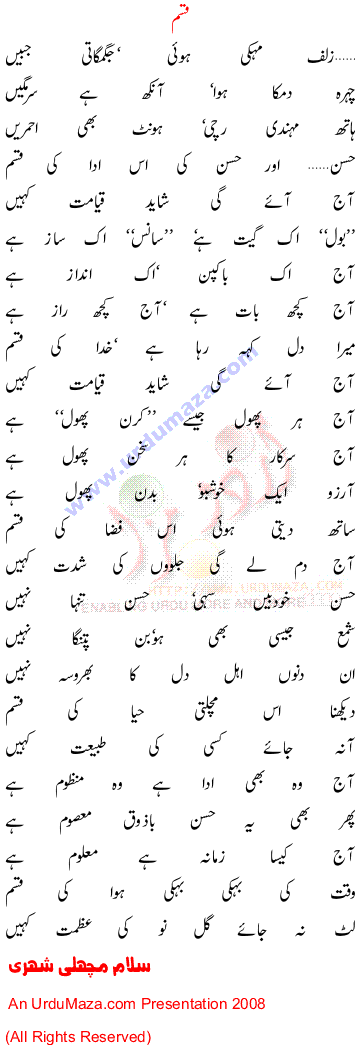 قسم
......زلف مہکی ہوئی ‘جگمگاتی جبیں
چہرہ دمکا ہوا‘ آنکھ ہے سرمگیں
ہاتھ مہندی رچی‘ ہونٹ بھی احمریں
حسن...... اور حسن کی اس ادا کی قسم
آج آئے گی شاید قیامت کہیں
’’بول‘‘ اک گیت ہے‘ ’’سانس‘‘ اک ساز ہے
آج اک بانکپن ‘اک انداز ہے
آج کچھ بات ہے ‘آج کچھ راز ہے
میرا دل کہہ رہا ہے ‘خدا کی قسم
آج آئے گی شاید قیامت کہیں
آج ہر پھول جیسے ’’کرن پھول‘‘ ہے
آج سرکار کا ہر سخن پھول ہے
آرزو ایک خوشبو‘ بدن پھول ہے
ساتھ دیتی ہوئی اس فضا کی قسم
آج دم لے گی جلووں کی شدت کہیں
حسن خودبیں سہی‘ حسن تنہا نہیں
شمع جیسی بھی ہو‘بن پتنگا نہیں
ان دنوں اہل دل کا بھروسہ نہیں
دیکھنا اس مچلتی حیا کی قسم
آنہ جائے کسی کی طبیعت کہیں
آج وہ بھی ادا ہے وہ منظوم ہے
پھر بھی یہ حسن باذوق معصوم ہے
آج کیسا زمانہ ہے معلوم ہے
وقت کی بہکی بہکی ہوا کی قسم
لٹ نہ جائے گل نو کی عظمت کہیں
سلام مچھلی شہری
An UrduMaza.com Presentation 2008
(All Rights Reserved)
www.urdumaza.com
HTTP://WWW.URDUMAZA.COM